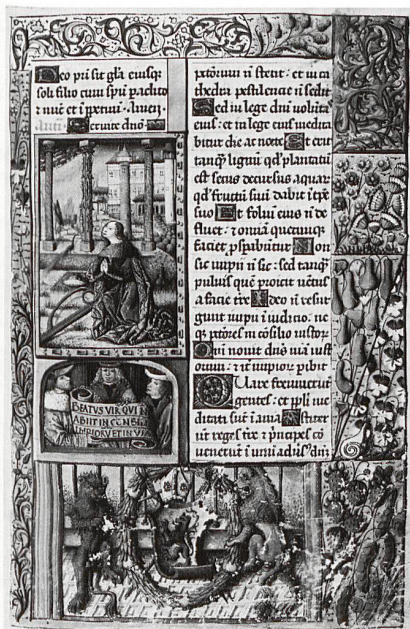 Deo pri sit gla eiusqz
soli filio cum spu paclito
et nuc et i ppetuu · Amen ·
Seruite dno
BEATUS VIR QUI N
ABIIT IN CONSILI
IMPIORV ET IN VI
pctorum n stetit : et in ca
thedra pestilencie n sedit
Sed in lege dni volutas
eius : et in lege eius medita
bitur die ac nocte Et erit
tanqz lignu qd plantatu
est secus decursus aquar
qd fructu suu dabit i tpe
suo Et foliu eius n de
fluet : et omia quecuqz
faciet pspabutur Non
sic impii n sic : sed tanqz
puluis que proicit uetus
a facie tre Ideo n resur
gunt impii i iudicio : ne
qz pctores in cosilio iustor
Qm nouit dns uia iust
orum : et it impior pibit
Quare fremuerut
gentes : et pli me
ditati sut iania Astiteret
ut reges tre et pncipes co
uenerut i unu adus dnm